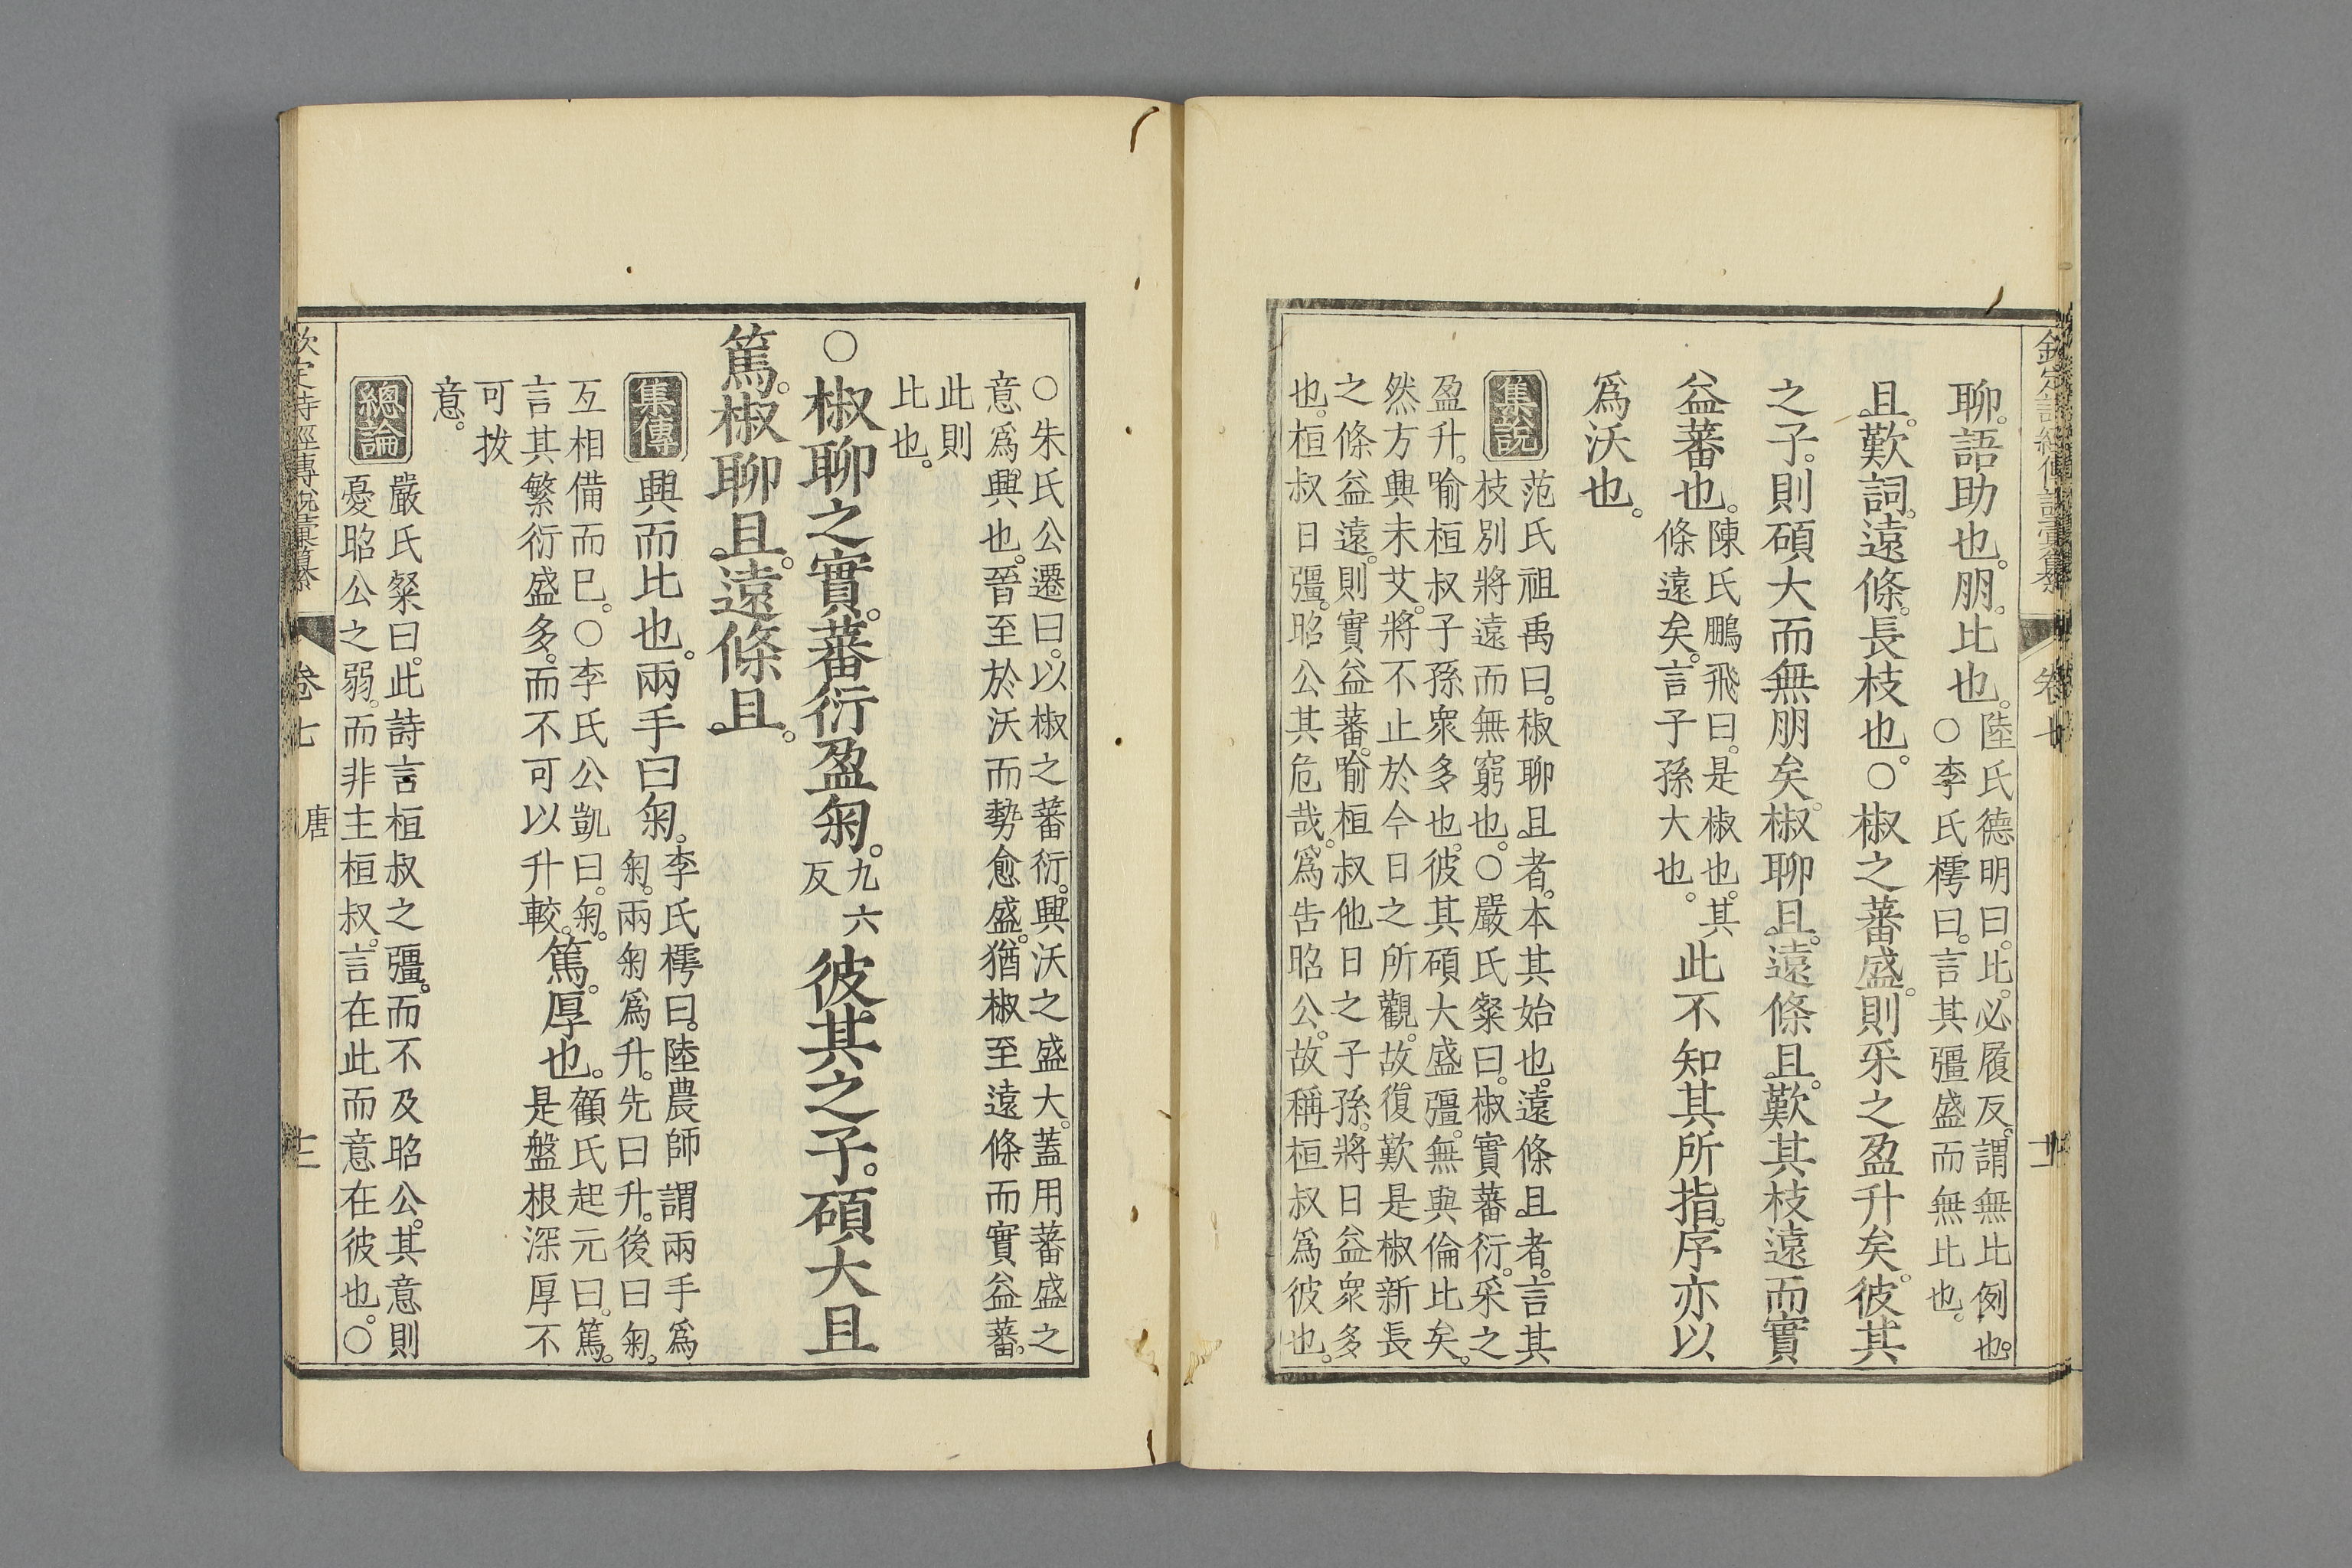 欽定詩經傳說彙纂 卷七 十二
聊。語助也。朋。比也。陸氏德明曰。比。必履反。謂無比例也。
○李氏樗曰。言其彊盛而無比也。
且。歎詞。遠條。長枝也。○椒之蕃盛。則采之盈升矣。彼其
之子。則碩大而無朋矣。椒聊且。遠條且。歎其枝遠而實
益蕃也。陳氏鵬飛曰。是椒也。其
條遠矣。言子孫大也。此不知其所指。序亦以
爲沃也。
集說 范氏祖禹曰。椒聊且者。本其始也。遠條且者。言其
枝別將遠而無窮也。○嚴氏粲曰。椒實蕃衍。采之
盈升。喻桓叔子孫衆多也。彼其碩大盛彊。無與倫比矣。
然方興未艾。將不止於今日之所觀。故復歎是椒新長
之條益遠。則實益蕃。喻桓叔他日之子孫。將日益衆多
也。桓叔日彊。昭公其危哉。爲告昭公。故稱桓叔爲彼也。
○朱氏公遷曰。以椒之蕃衍。興沃之盛大。蓋用蕃盛之
意爲興也。晉至於沃而勢愈盛。猶椒至遠條而實益蕃。
此則
比也。
○椒聊之實。蕃衍盈匊。九六
反彼其之子。碩大且
篤。椒聊且。遠條且。
集傳 興而比也。兩手曰匊。李氏樗曰。陸農師謂兩手爲
匊。兩匊爲升。先曰升。後曰匊。
互相備而已。○李氏公凱曰。匊。
言其繁衍盛多。而不可以升較。篤。厚也。顧氏起元曰。篤。
是盤根深厚不
可拔
意。
總論 嚴氏粲曰。此詩言桓叔之彊。而不及昭公。其意則
憂昭公之弱。而非主桓叔。言在此而意在彼也。○
欽定詩經傳說彙纂 卷七 唐